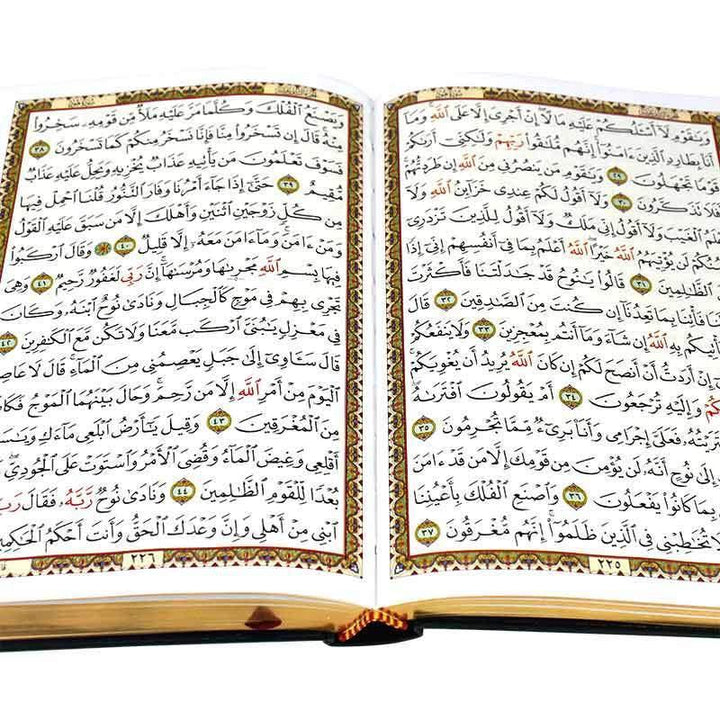 وَيَٰقَوْمِ لَآ أَسْـَٔلُكُمْ عَلَيْهِ مَالًا إِنْ أَجْرِىَ إِلَّا عَلَى ٱللَّهِ وَمَآ
أَنَا۠ بِطَارِدِ ٱلَّذِينَ ءَامَنُوٓا۟ إِنَّهُم مُّلَٰقُوا۟ رَبِّهِمْ وَلَٰكِنِّىٓ أَرَىٰكُمْ
قَوْمًا تَجْهَلُونَ ٢٩ وَيَٰقَوْمِ مَن يَنصُرُنِى مِنَ ٱللَّهِ إِن طَرَدتُّهُمْ
أَفَلَا تَذَكَّرُونَ ٣٠ وَلَآ أَقُولُ لَكُمْ عِندِى خَزَآئِنُ ٱللَّهِ وَلَآ
أَعْلَمُ ٱلْغَيْبَ وَلَآ أَقُولُ إِنِّى مَلَكٌ وَلَآ أَقُولُ لِلَّذِينَ تَزْدَرِىٓ
أَعْيُنُكُمْ لَن يُؤْتِيَهُمُ ٱللَّهُ خَيْرًا ٱللَّهُ أَعْلَمُ بِمَا فِىٓ أَنفُسِهِمْ إِنِّىٓ إِذًا
لَّمِنَ ٱلظَّٰلِمِينَ ٣١ قَالُوا۟ يَٰنُوحُ قَدْ جَٰدَلْتَنَا فَأَكْثَرْتَ
جِدَٰلَنَا فَأْتِنَا بِمَا تَعِدُنَآ إِن كُنتَ مِنَ ٱلصَّٰدِقِينَ ٣٢ قَالَ
إِنَّمَا يَأْتِيكُم بِهِ ٱللَّهُ إِن شَآءَ وَمَآ أَنتُم بِمُعْجِزِينَ ٣٣ وَلَا يَنفَعُكُمْ
نُصْحِىٓ إِنْ أَرَدتُّ أَنْ أَنصَحَ لَكُمْ إِن كَانَ ٱللَّهُ يُرِيدُ أَن يُغْوِيَكُمْ
هُوَ رَبُّكُمْ وَإِلَيْهِ تُرْجَعُونَ ٣٤ أَمْ يَقُولُونَ ٱفْتَرَىٰهُ
قُلْ إِنِ ٱفْتَرَيْتُهُۥ فَعَلَىَّ إِجْرَامِى وَأَنَا۠ بَرِىٓءٌ مِّمَّا تُجْرِمُونَ ٣٥
وَأُوحِىَ إِلَىٰ نُوحٍ أَنَّهُۥ لَن يُؤْمِنَ مِن قَوْمِكَ إِلَّا مَن قَدْ ءَامَنَ
فَلَا تَبْتَئِسْ بِمَا كَانُوا۟ يَفْعَلُونَ ٣٦ وَٱصْنَعِ ٱلْفُلْكَ بِأَعْيُنِنَا
وَوَحْيِنَا وَلَا تُخَٰطِبْنِى فِى ٱلَّذِينَ ظَلَمُوٓا۟ إِنَّهُم مُّغْرَقُونَ ٣٧
٢٢٥
وَيَصْنَعُ ٱلْفُلْكَ وَكُلَّمَا مَرَّ عَلَيْهِ مَلَأٌ مِّن قَوْمِهِۦ سَخِرُوا۟
مِنْهُ قَالَ إِن تَسْخَرُوا۟ مِنَّا فَإِنَّا نَسْخَرُ مِنكُمْ كَمَا تَسْخَرُونَ ٣٨
فَسَوْفَ تَعْلَمُونَ مَن يَأْتِيهِ عَذَابٌ يُخْزِيهِ وَيَحِلُّ عَلَيْهِ عَذَابٌ
مُّقِيمٌ ٣٩ حَتَّىٰٓ إِذَا جَآءَ أَمْرُنَا وَفَارَ ٱلتَّنُّورُ قُلْنَا ٱحْمِلْ فِيهَا
مِن كُلٍّ زَوْجَيْنِ ٱثْنَيْنِ وَأَهْلَكَ إِلَّا مَن سَبَقَ عَلَيْهِ ٱلْقَوْلُ
وَمَنْ ءَامَنَ وَمَآ ءَامَنَ مَعَهُۥٓ إِلَّا قَلِيلٌ ٤٠ وَقَالَ ٱرْكَبُوا۟
فِيهَا بِسْمِ ٱللَّهِ مَجْر۪ىٰهَا وَمُرْسَىٰهَآ إِنَّ رَبِّى لَغَفُورٌ رَّحِيمٌ ٤١ وَهِىَ
تَجْرِى بِهِمْ فِى مَوْجٍ كَٱلْجِبَالِ وَنَادَىٰ نُوحٌ ٱبْنَهُۥ وَكَانَ
فِى مَعْزِلٍ يَٰبُنَىَّ ٱرْكَب مَّعَنَا وَلَا تَكُن مَّعَ ٱلْكَٰفِرِينَ ٤٢
قَالَ سَـَٔاوِىٓ إِلَىٰ جَبَلٍ يَعْصِمُنِى مِنَ ٱلْمَآءِ قَالَ لَا عَاصِمَ
ٱلْيَوْمَ مِنْ أَمْرِ ٱللَّهِ إِلَّا مَن رَّحِمَ وَحَالَ بَيْنَهُمَا ٱلْمَوْجُ فَكَانَ
مِنَ ٱلْمُغْرَقِينَ ٤٣ وَقِيلَ يَٰٓأَرْضُ ٱبْلَعِى مَآءَكِ وَيَٰسَمَآءُ
أَقْلِعِى وَغِيضَ ٱلْمَآءُ وَقُضِىَ ٱلْأَمْرُ وَٱسْتَوَتْ عَلَى ٱلْجُودِىِّ وَقِيلَ
بُعْدًا لِّلْقَوْمِ ٱلظَّٰلِمِينَ ٤٤ وَنَادَىٰ نُوحٌ رَّبَّهُۥ فَقَالَ رَبِّ إِنَّ
ٱبْنِى مِنْ أَهْلِى وَإِنَّ وَعْدَكَ ٱلْحَقُّ وَأَنتَ أَحْكَمُ ٱلْحَٰكِمِينَ
٢٢٦